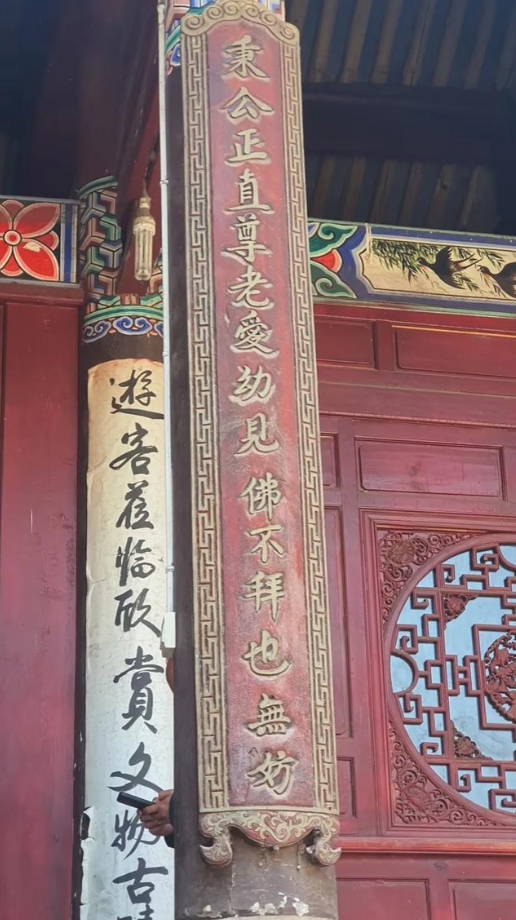 秉公正直尊老愛幼見佛不拜也無妨
遊客蒞臨欣賞文物古